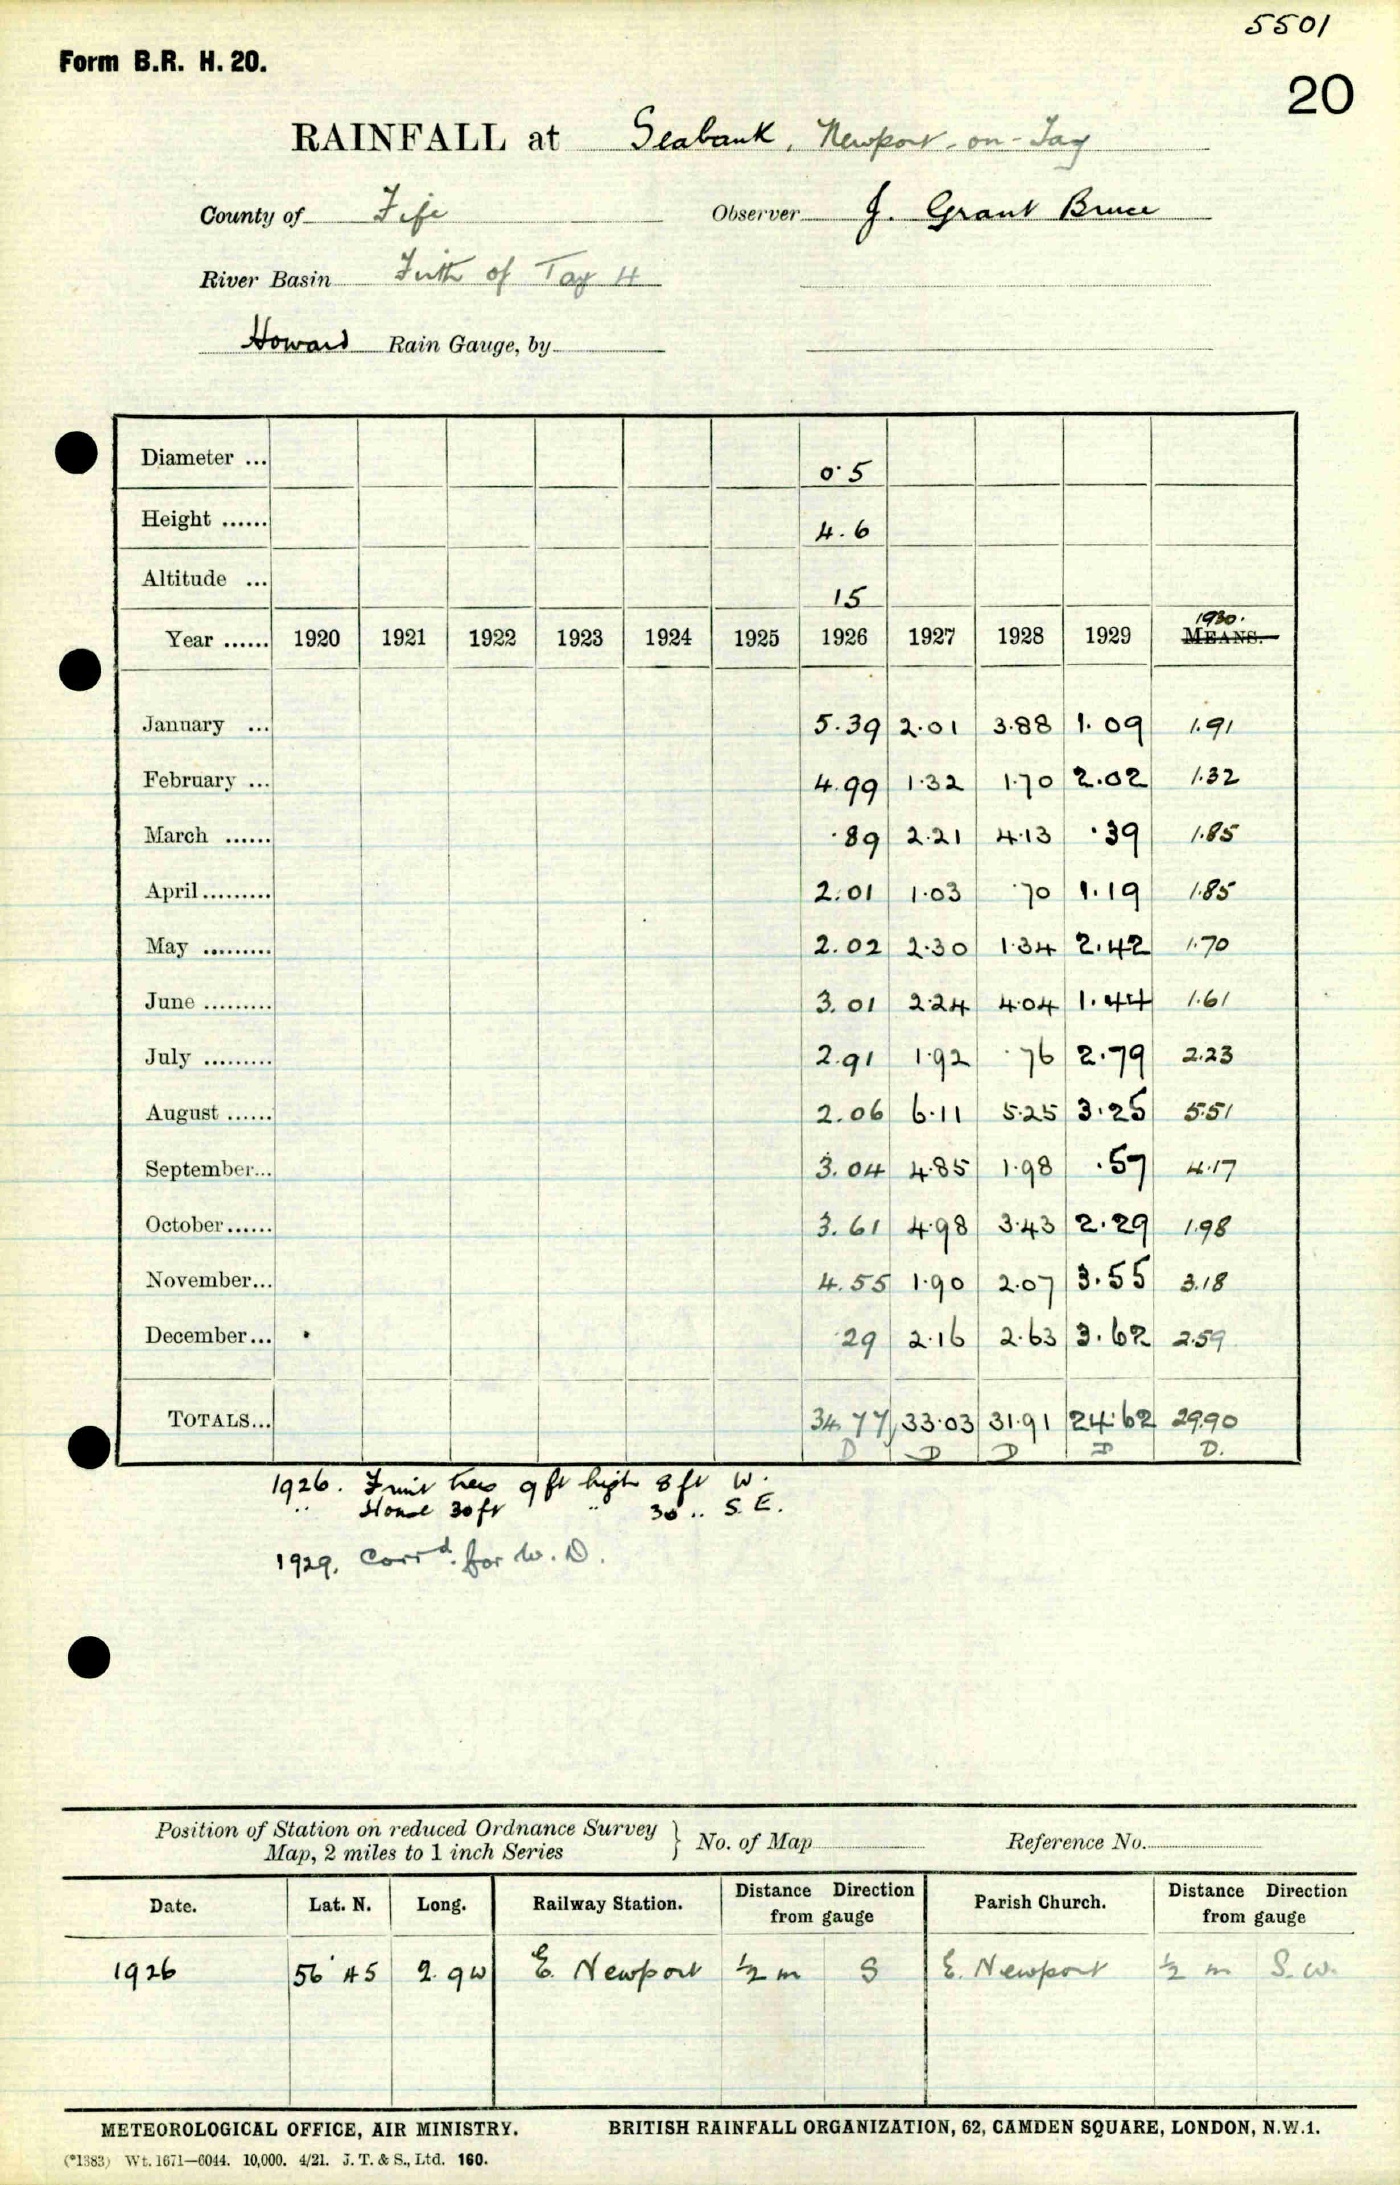 5501
Form B.R. H. 20.
20
RAINFALL at Seabank, Newport-on-Tay
County of Fife Observer J. Grant Bruce
River Basin Firth of Tay H
Howard Rain Gauge, by
Diameter ... 0.5
Height ...... 4.6
Altitude ... 15
1930.
Year ...... 1920 1921 1922 1923 1924 1925 1926 1927 1928 1929 MEANS.
January ... 5.39 2.01 3.88 1.09 1.91
February ... 4.99 1.32 1.70 2.02 1.32
March ...... .89 2.21 4.13 .39 1.85
April ......... 2.01 1.03 .70 1.19 1.85
May ......... 2.02 2.30 1.34 2.42 1.70
June ......... 3.01 2.24 4.04 1.44 1.61
July ......... 2.91 1.92 .76 2.79 2.23
August ...... 2.06 6.11 5.25 3.25 5.51
September... 3.04 4.85 1.98 .57 4.17
October...... 3.61 4.98 3.43 2.29 1.98
November... 4.55 1.90 2.07 3.55 3.18
December... .29 2.16 2.63 3.62 2.59
TOTALS... 34.77 33.03 31.91 24.62 29.90
D D D D D.
1926. Fruit trees 9 ft high 8 ft W.
" House 30 ft " 30 " S.E.
1929. Corrd. for W.D.
Position of Station on reduced Ordnance Survey
Map, 2 miles to 1 inch Series } No. of Map Reference No.
Date. Lat. N. Long. Railway Station. Distance Direction from gauge Parish Church. Distance Direction from gauge
1926 56°45 2.9W E. Newport ½ m S E. Newport ½ m S.W.
METEOROLOGICAL OFFICE, AIR MINISTRY. BRITISH RAINFALL ORGANIZATION, 62, CAMDEN SQUARE, LONDON, N.W.1.
(*1383) Wt. 1671—6044. 10,000. 4/21. J. T. & S., Ltd. 160.